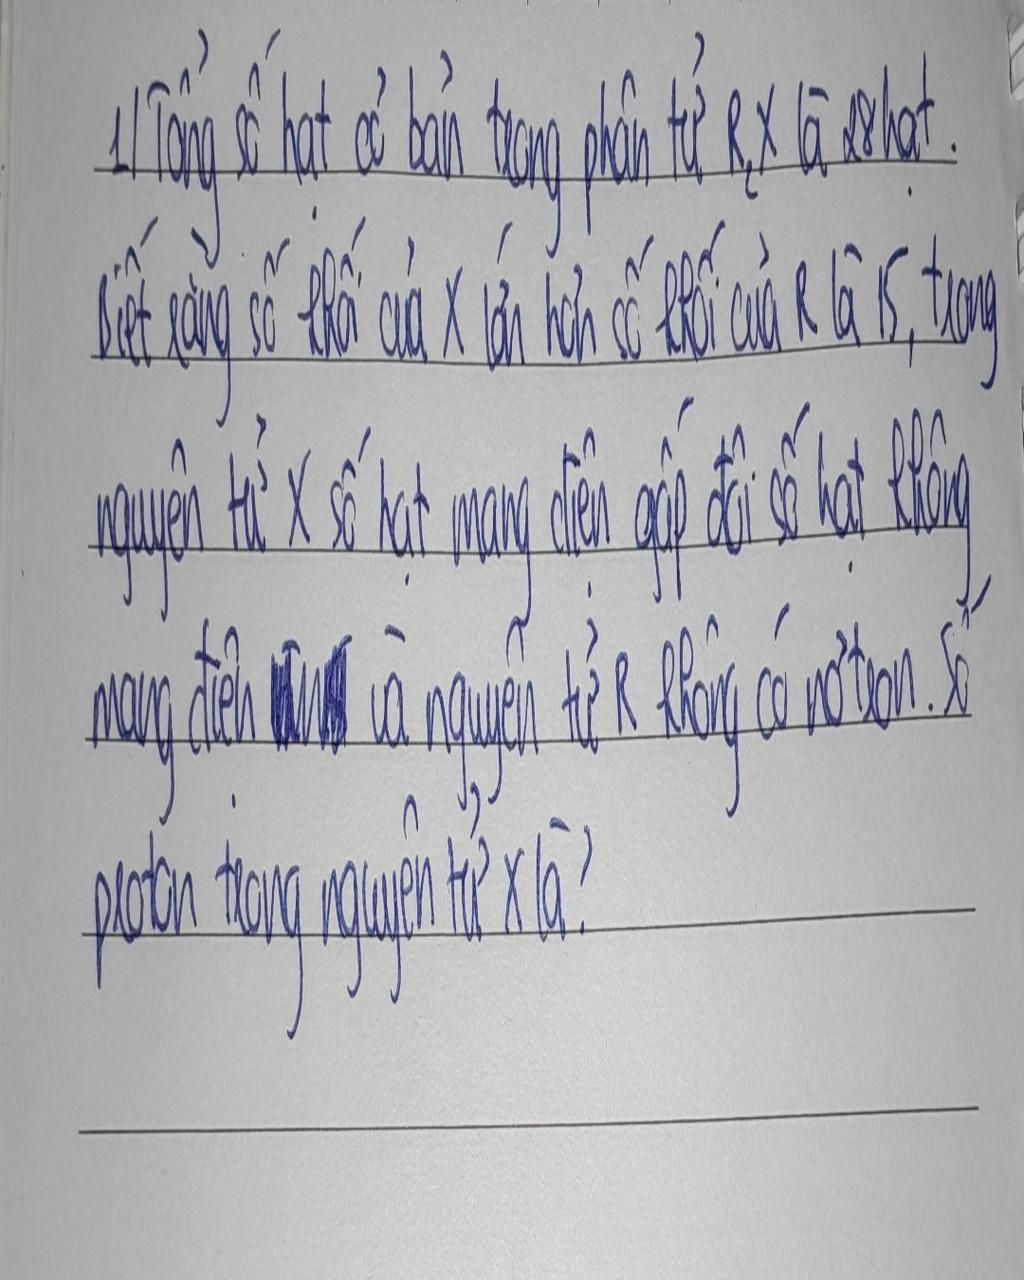 1/ Tổng số hạt cơ bản trong phân tử R₂X là 28 hạt.
Biết rằng số khối của X lớn hơn số khối của R là 15, trong
nguyên tử X số hạt mang điện gấp đôi số hạt không
mang điện và nguyên tử R không có nơtron. Số
proton trong nguyên tử X là?